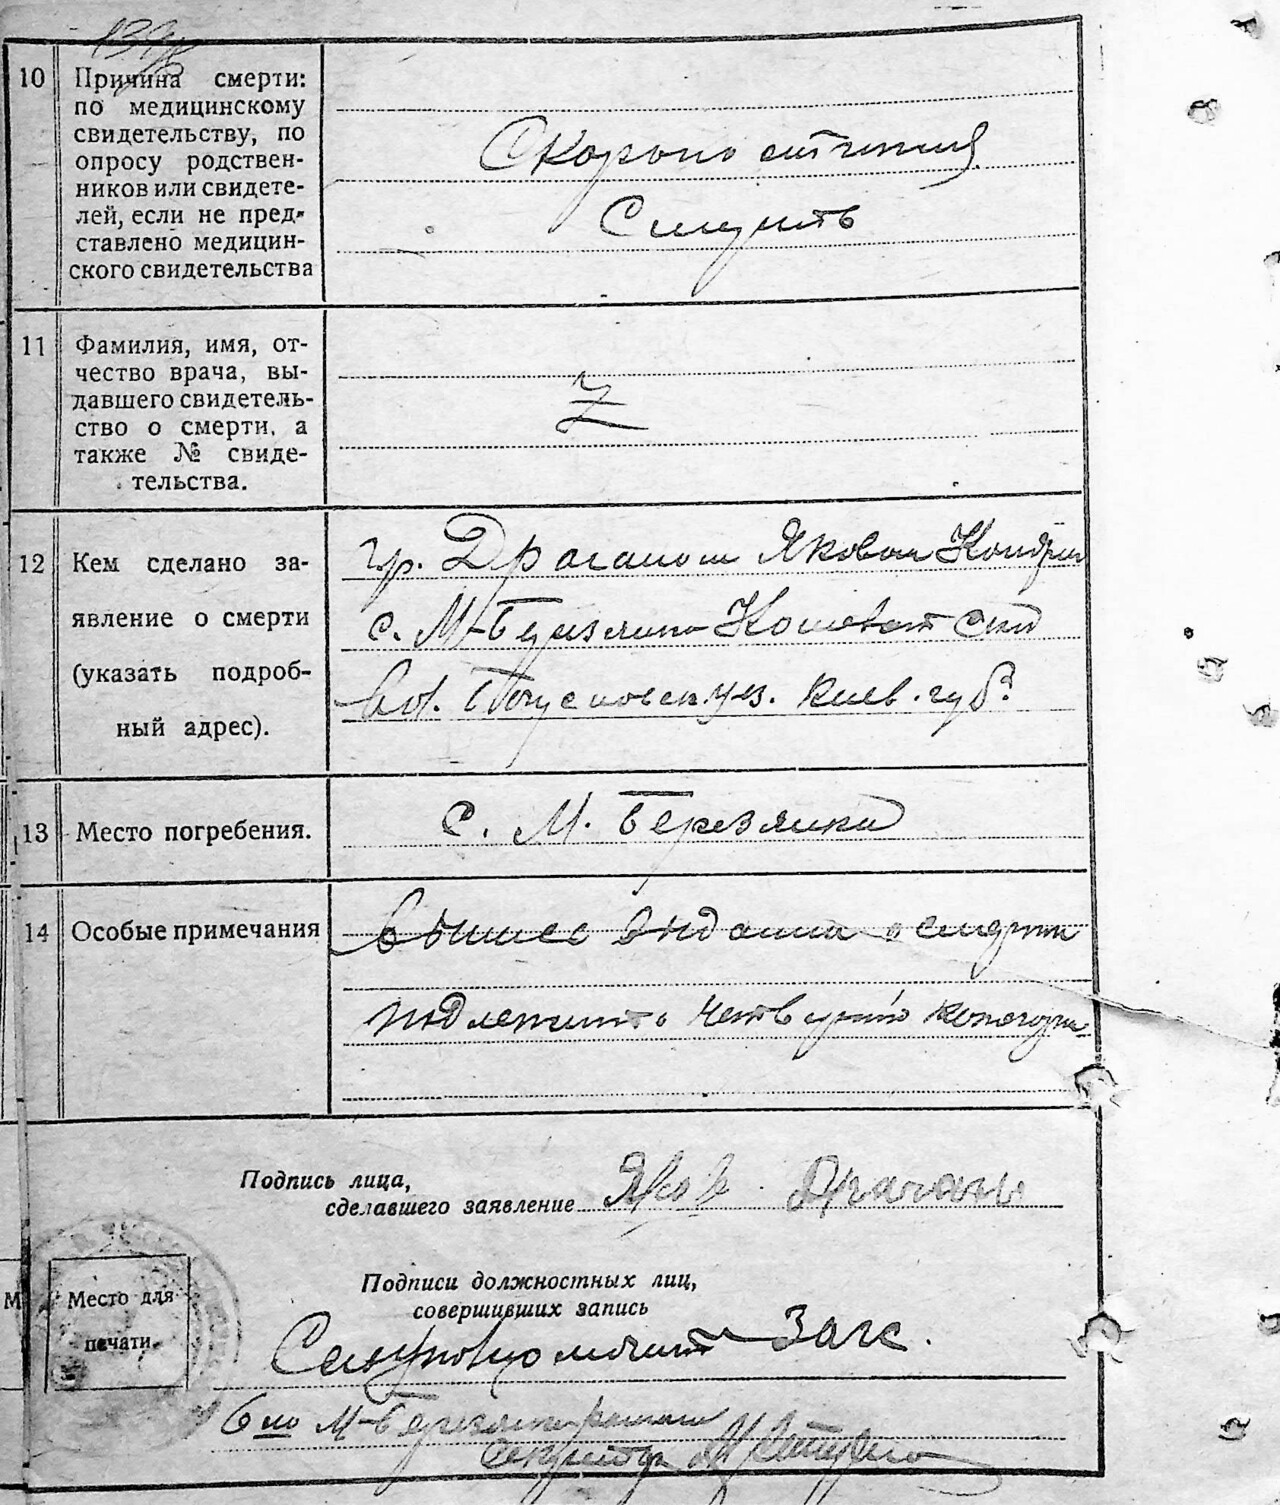 10 Причина смерти:
по медицинскому
свидетельству, по
опросу родствен-
ников или свидете-
лей, если не пред-
ставлено медицин-
ского свидетельства
Скоропостижная
Смерть
11 Фамилия, имя, от-
чество врача, вы-
давшего свидетель-
ство о смерти, а
также № свиде-
тельства.
12 Кем сделано за-
явление о смерти
(указать подроб-
ный адрес).
гр. Драганом Яковом
с. М-Березянка
вол. уез. Киев. губ.
13 Место погребения.
с. М. Березянка
14 Особые примечания
о смерти
подлежит
Подпись лица,
сделавшего заявление Яков Драган
Подписи должностных лиц,
совершивших запись
Место для
печати.
Загс.
М-Березян
Секретарь